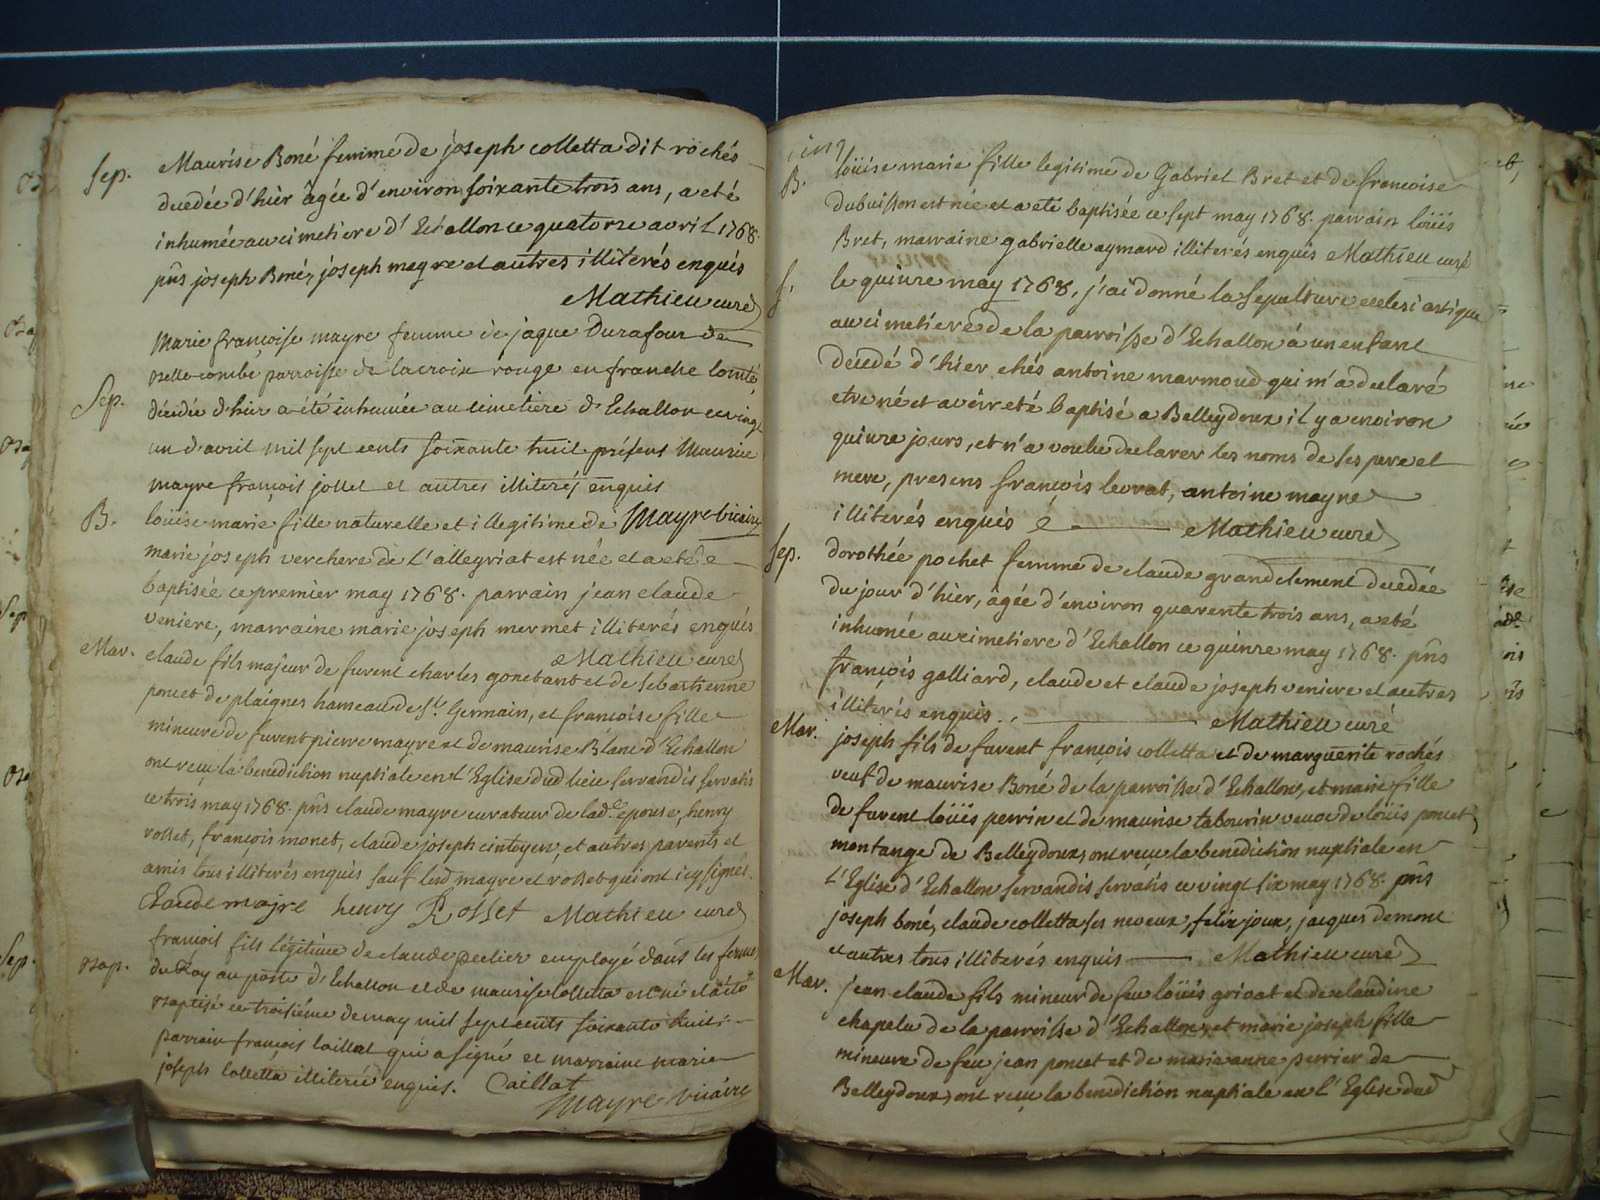 Sep. Maurise Boné femme de joseph colletta dit rochés
decedée d'hier âgée d'environ soixante trois ans, a eté
inhumée au cimetiere d'Echallon ce quatorze avril 1768.
pñs joseph Boné, joseph mayre et autres illiterés enquis
Mathieu curé
Marie francoise mayre femme de jaque Durafour de
combe parroisse de lacroix rouge en franche Comté
Sep. décédée d'hier a été inhumée au cimetiere d'Echallon ce vingt
un d'avril mil sept cents soixante huit présens Maurice
mayre françois jollet et autres illiterés enquis
B. loüise marie fille naturelle et illegitime de Mayre vicaire
marie joseph verchere de L'allegriat est née et a eté
baptisée ce premier may 1768. parrain jean claude
veniere, marraine marie joseph mermet illiterés enquis
Mathieu curé
Mar. claude fils majeur de fuvent charles gonet et de sebastienne
poncet de plaignes hameau de St. Germain, et francoise fille
mineure de fuvent pierre mayre et de maurise Blanc d'Echallon
ont reçu la benediction nuptiale en L'Eglise dud lieu servandis servatis
ce trois may 1768. pñs claude mayre curateur de lad.e epouse, henry
rosset, françois monet, claude joseph cintoyen, et autres parents et
amis tous illiterés enquis sauf lesd mayre et rosset qui ont icy signés.
Claude majre henry Rosset Mathieu curé
Bap. francois fils légitime de claude pelier employé dans les fermes
du Roy au poste d'Echallon et de maurise Colletta est né et a été
Baptisé ce troisiéme de may mil sept cents soixante huit.
parrain françois Caillat qui a signé et marraine marie
joseph Colletta illiterée enquis. Caillat
Mayre vicaire
B. loüise marie fille legitime de Gabriel Bret et de francoise
dubuisson est née et a eté baptisée ce sept may 1768. parrain loüis
Bret, marraine gabrielle aymard illiterés enquis Mathieu curé
S. le quinze may 1768, j'ai donné la sepulture ecclesiastique
au cimetiere de la parroisse d'Echallon á un enfant
decedé d'hier chés antoine marmoud qui m'a declaré
etre né et avoir eté baptisé a Belleydoux il y a environ
quinze jours, et n'a voulu declarer les noms de ses pere et
mere, presens françois levrat, antoine mayre
illiterés enquis Mathieu curé
Sep. dorothée pochet femme de claude grandclement decedée
du jour d'hier, âgée d'environ quarente trois ans, a eté
inhumée au cimetiere d'Echallon ce quinze may 1768. pñs
françois galliard, claude et claude joseph veniere et autres
illiterés enquis. Mathieu curé
Mar. joseph fils de fuvent françois colletta et de marguerite rochés
veuf de maurise Boné de la parroisse d'Echallon, et marie fille
de fuvent loüis perrin et de maurise tabourin veuve de loüis poncet
montange de Belleydoux, ont reçu la benediction nuptiale en
L'Eglise d'Echallon servandis servatis ce vingt six may 1768. pñs
joseph boné, claude colletta ses neveux, felix joux, jacques demont
et autres tous illiterés enquis Mathieu curé
Mar. jean claude fils mineur de feu loüis grivat et de claudine
chapelu de la parroisse d'Echallon, et marie joseph fille
mineure de feu jean poncet et de marie anne perrier de
Belleydoux, ont reçu la benediction nuptiale en L'Eglise dud